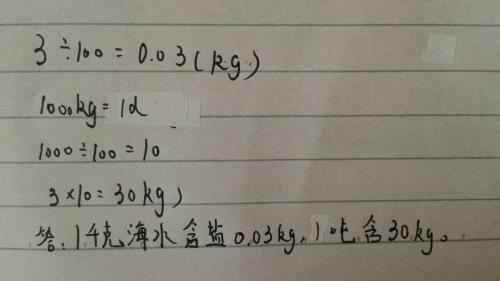 3÷100=0.03(kg)
1000kg=1d
1000÷100=10
3×10=30kg)
答:1千克海水含盐0.03kg,1吨含30kg。